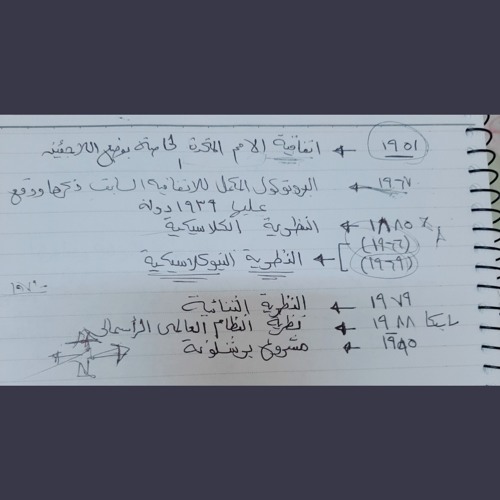 ١٩٥١ ← اتفاقية الامم المتحدة الخاصة بوضع اللاجئين
١٩٦٧ ← البروتوكول المكمل للاتفاقية السابق ذكرها ووقع
عليها ١٩٣٩ دولة
١٨٨٥ ← النظرية الكلاسيكية
(١٩٦٦)
(١٩٦٩) ← النظرية النيوكلاسيكية
١٩٧٠
١٩٧٩ ← النظرية الثنائية
١٩٨٨ ← نظرية النظام العالمي الرأسمالي
١٩٨٥ ← مشروع برشلونة